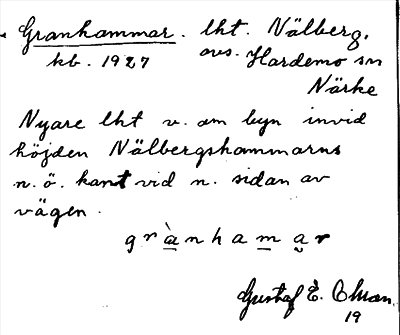 Granhammar. lht. Nälberg,
kb. 1927 avs. Hardemo sn
Närke
Nyare lht v. om byn invid
höjden Nälbergshammarns
n.ö. kant vid n. sidan av
vägen.
grànhamar
Gustaf E.
19